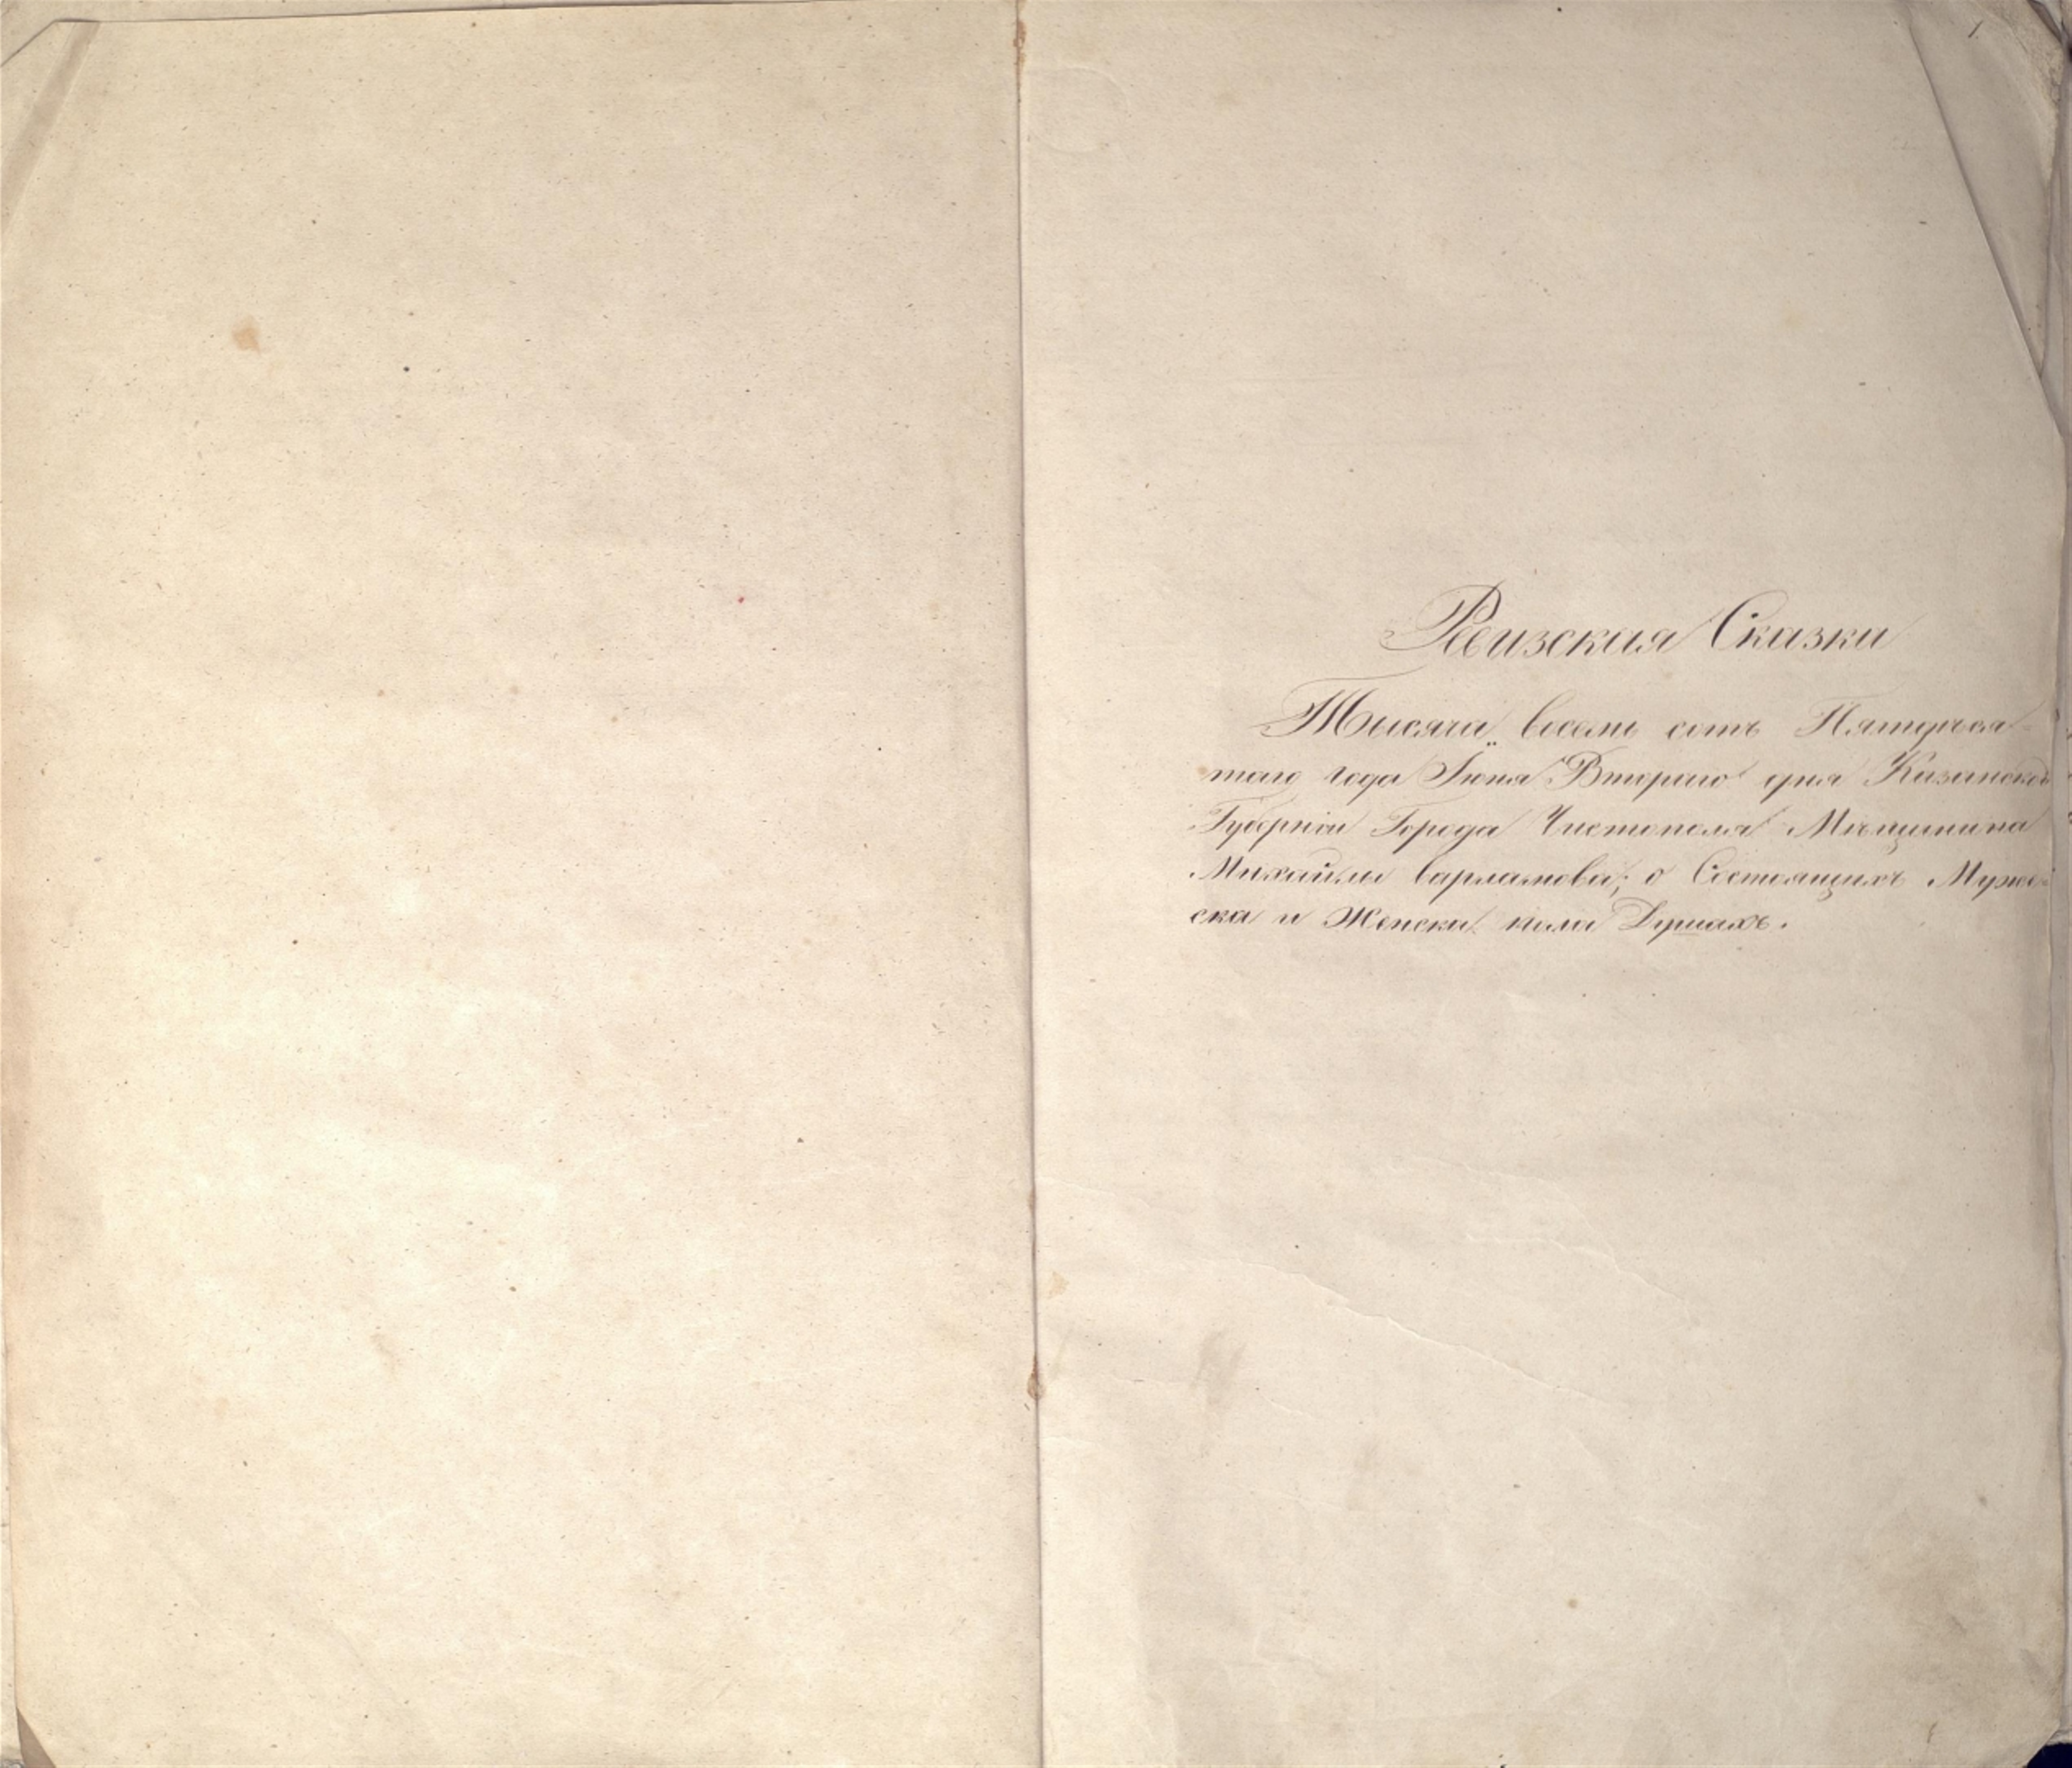 1
Ревизския Сказки
Тысяча восемь сотъ Пятдеся-
таго года Іюня Втораго дня Казанской
Губерніи Города Чистополя Мѣщанина
Михайлы Варламова; о Состоящихъ Муже-
ска и Женска пола Душахъ.